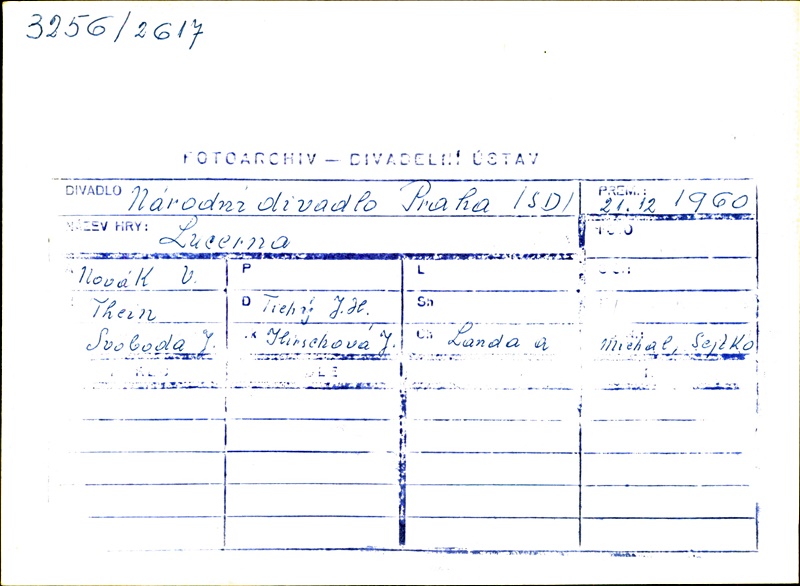 3256/2617
FOTOARCHIV — DIVADELNÍ ÚSTAV
DIVADLO Národní divadlo Praha /SD/ PREM.: 21.12 1960
NÁZEV HRY: Lucerna
Novák V. P L
Thein D Tichý J.H. Sh
Svoboda J. K Hirschová J. Ch Landa a Michal, Sejtko